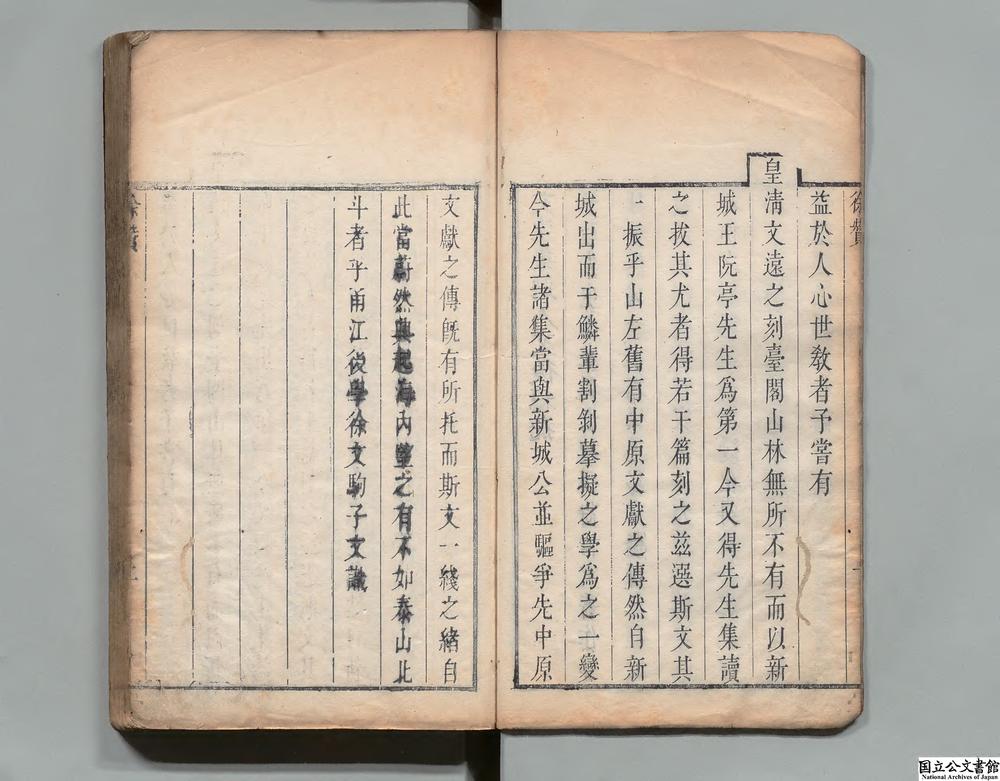 徐贊
益於人心世敎者予嘗有
皇淸文遠之刻臺閣山林無所不有而以新
城王阮亭先生爲第一今又得先生集讀
之拔其尤者得若干篇刻之玆選斯文其
一振乎山左舊有中原文獻之傳然自新
城出而于鱗輩割剝摹擬之學爲之一變
今先生諸集當與新城公並驅爭先中原
文獻之傳旣有所托而斯文一綫之緖自
此當蔚然興起海內望之有不如泰山北
斗者乎甬江後學徐文駒子文識
徐贊
国立公文書館
National Archives of Japan